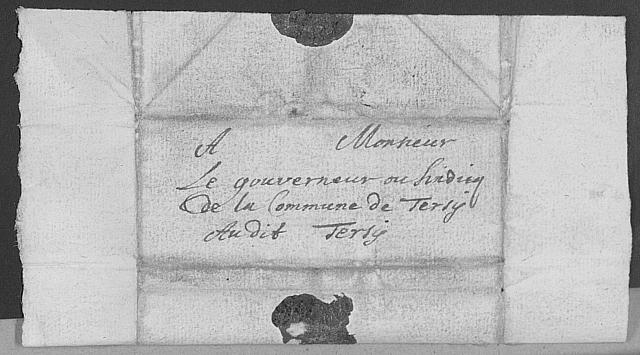 A Monsieur
Le gouverneur ou Sindicq
De la Commune de Tersy
Audit Tersy